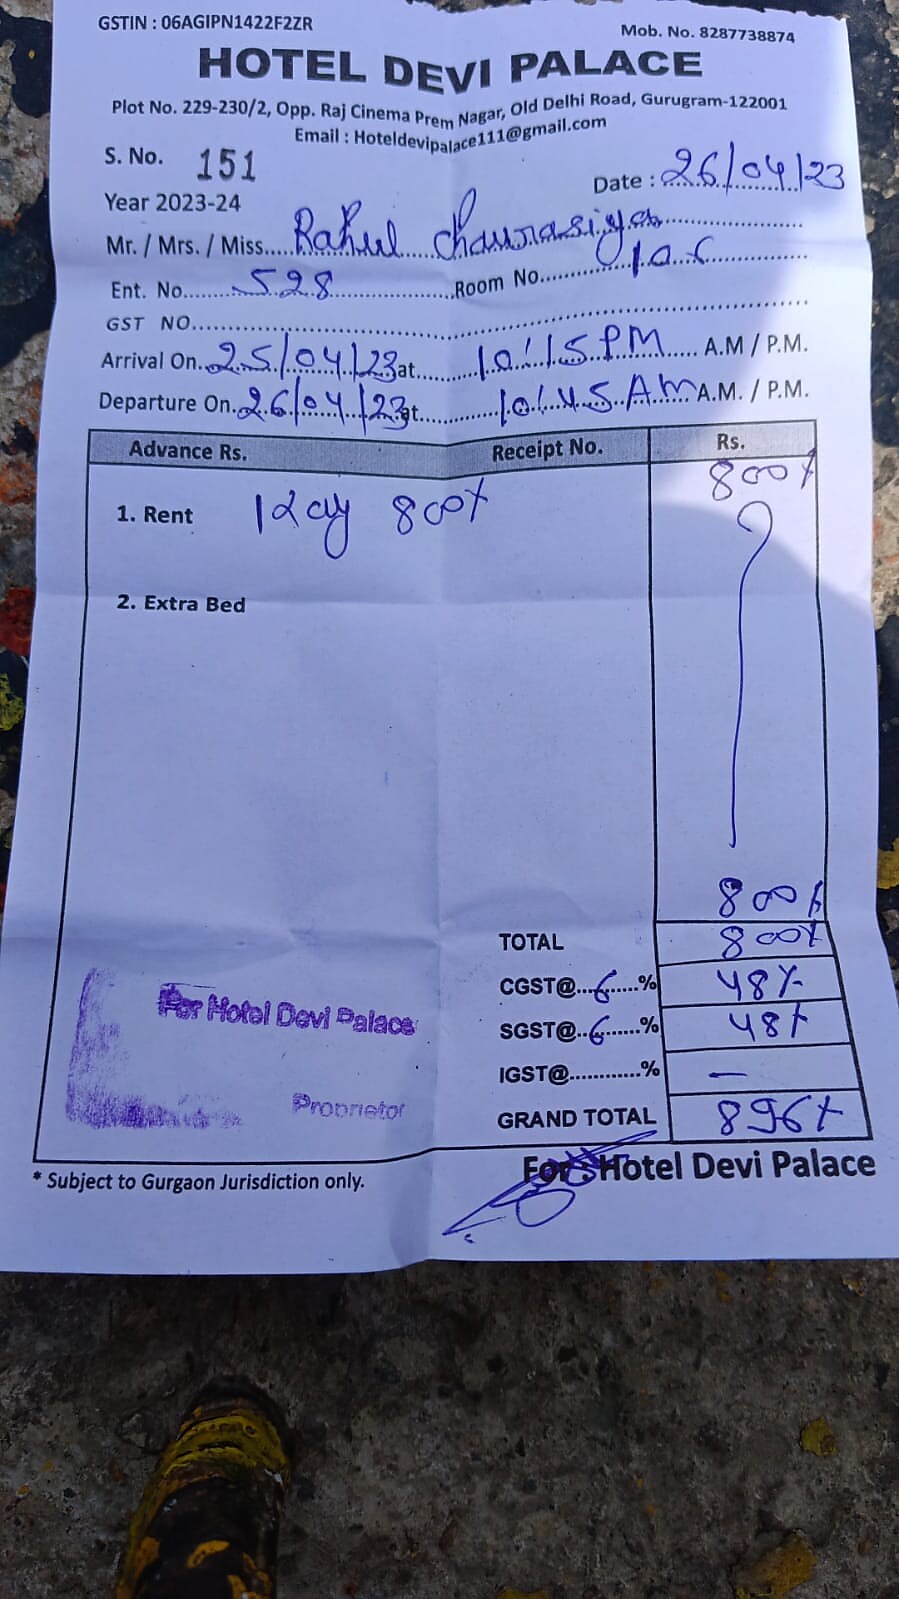 GSTIN : 06AGIPN1422F2ZR
Mob. No. 8287738874
HOTEL DEVI PALACE
Plot No. 229-230/2, Opp. Raj Cinema Prem Nagar, Old Delhi Road, Gurugram-122001
Email : Hoteldevipalace111@gmail.com
S. No. 151
Date : 26/04/23
Year 2023-24
Mr. / Mrs. / Miss.....Rahul Chaurasiya
Ent. No. 528 Room No. 106
GST NO.
Arrival On. 25/04/23 at 10:15 PM A.M / P.M.
Departure On. 26/04/23 at 10:45 AM A.M. / P.M.
Advance Rs. Receipt No. Rs.
800/-
1. Rent 1 Day 800/-
2. Extra Bed
800/-
TOTAL 800/-
CGST@...6......% 48/-
For Hotel Devi Palace
SGST@..6......% 48/-
IGST@............% —
Proprietor
GRAND TOTAL 896/-
For : Hotel Devi Palace
* Subject to Gurgaon Jurisdiction only.